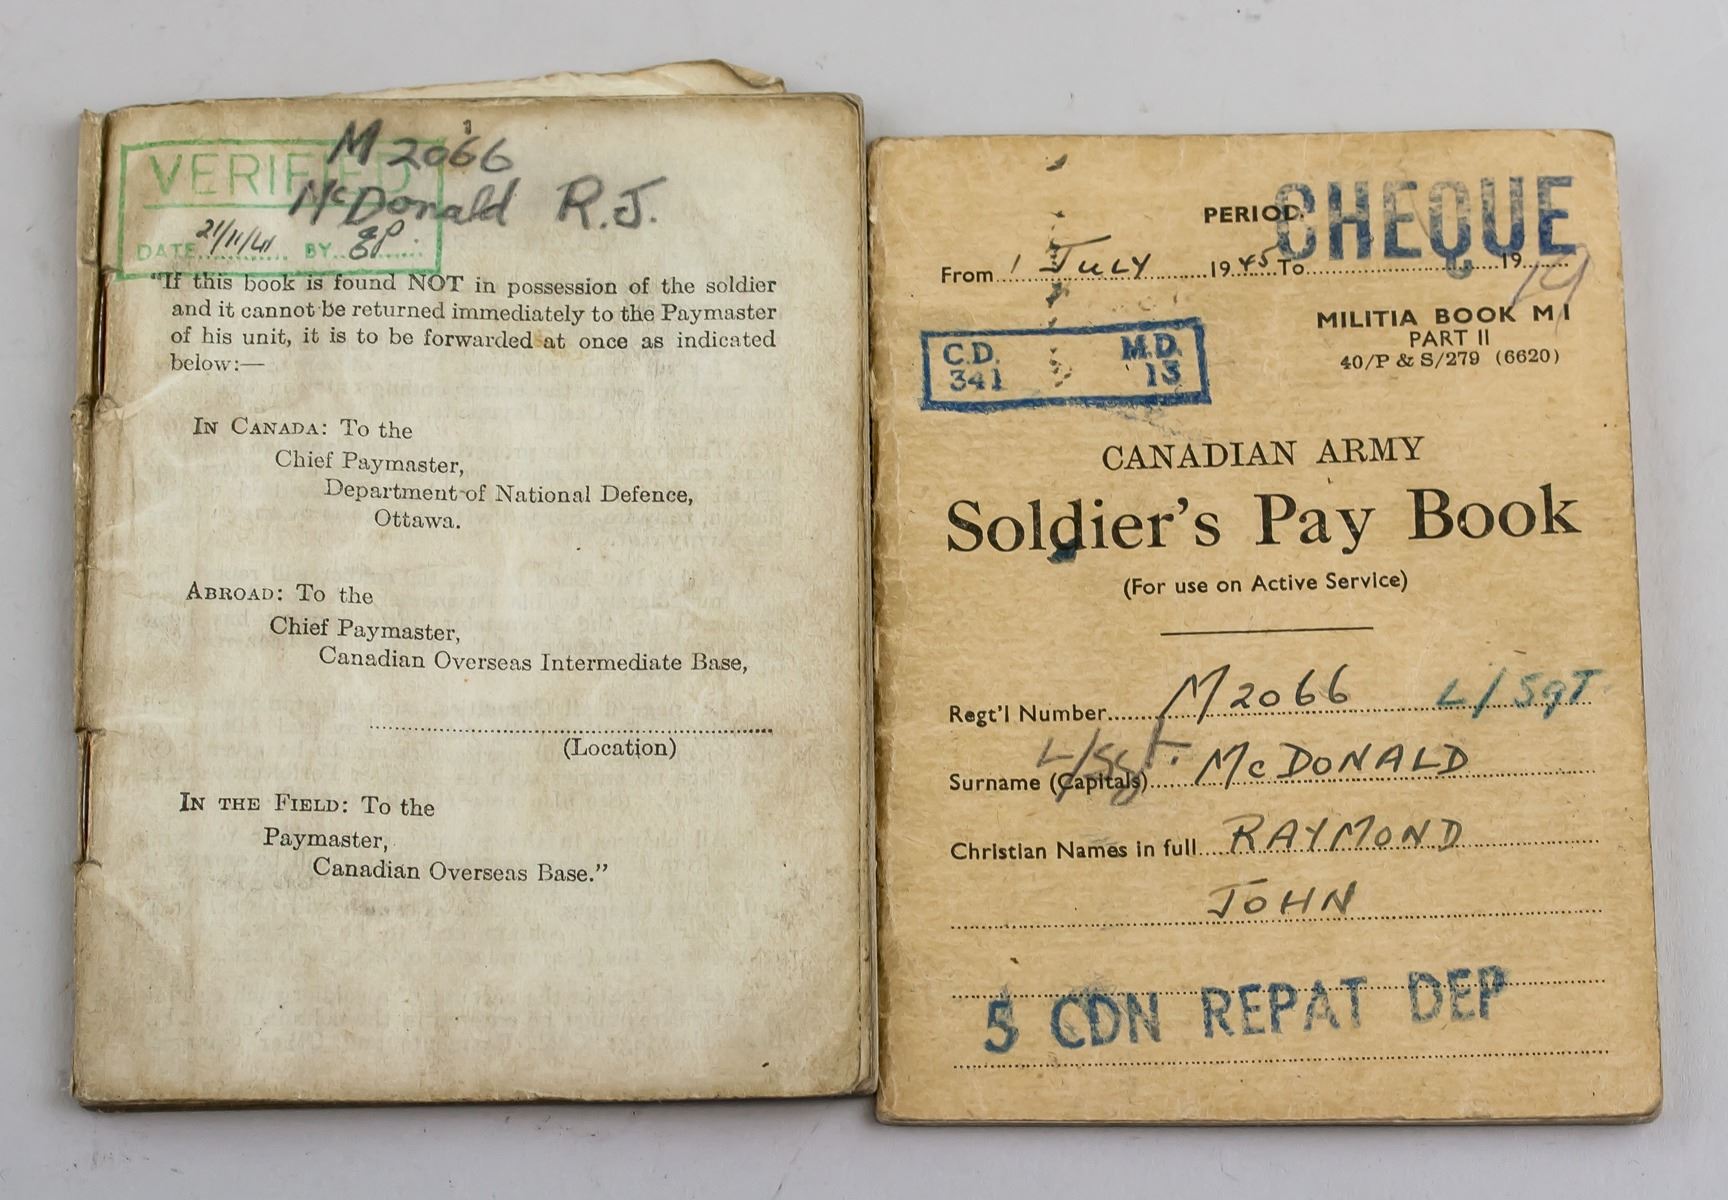 M 2066
VERIFIED
McDonald R.J.
DATE 21/11/41 BY
"If this book is found NOT in possession of the soldier
and it cannot be returned immediately to the Paymaster
of his unit, it is to be forwarded at once as indicated
below:—
IN CANADA: To the
Chief Paymaster,
Department of National Defence,
Ottawa.
ABROAD: To the
Chief Paymaster,
Canadian Overseas Intermediate Base,
(Location)
IN THE FIELD: To the
Paymaster,
Canadian Overseas Base."
PERIOD. CHEQUE
From 1 JULY 1945 To 19
MILITIA BOOK M 1
PART II
40/P & S/279 (6620)
C.D. M.D.
341 13
CANADIAN ARMY
Soldier's Pay Book
(For use on Active Service)
Regt'l Number M2066 L/SgT
L/Sgt.
Surname (Capitals) McDONALD
Christian Names in full RAYMOND
JOHN
5 CDN REPAT DEP